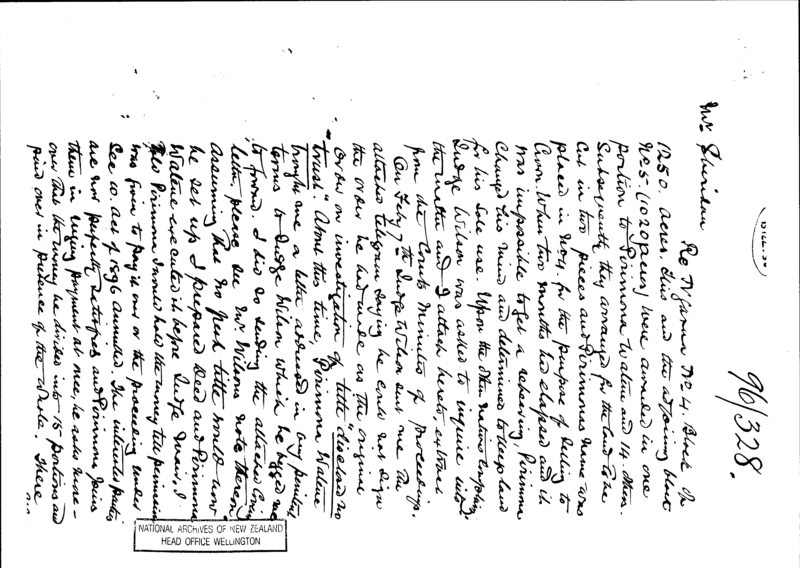 96/328.
Mr. Sheridan
Re Ngarara No 4. Block
1250 acres. This and the adjoining block
No 5. (1020 acres) were awarded in one
portion to Pirimona Watene and 14 others.
Subsequently they arranged for the land to be
cut in two pieces and Pirimonas name was
placed in No 4. for the purpose of selling to
Crown. When two months had elapsed and it
was impossible to get a rehearing Pirimona
changed his mind and determined to keep land
for his sole use. Upon the other natives
Judge Wilson was asked to inquire into
the matter and I attach hereto, extract
from the Courts Minutes of Proceedings.
On July 7th Judge Wilson sent me the
attached telegram saying he could not sign
the order he had made as the original
Order on investigation of title "disclosed no
trust." About this time, Pirimona Watene
brought me a letter addressed in any
terms to Judge Wilson which he begged me
to forward. I did so sending the attached
letter, please see Mr. Wilsons note thereon
Assuming that no fresh title would now
be set up I prepared Deed and Pirimona
Watene executed it before Judge Mair. I
also Pirimona should hold the money till permission
was given to pay it over or the proceeding under
Sec 10. Act of 1896 annulled. The interested parties
are now perfectly satisfied and Pirimona joins
them in urging payment at once, he asks more-
over that the money be divided into 15 portions and
paid over in presence of the whole. There
NATIONAL ARCHIVES OF NEW ZEALAND
HEAD OFFICE WELLINGTON